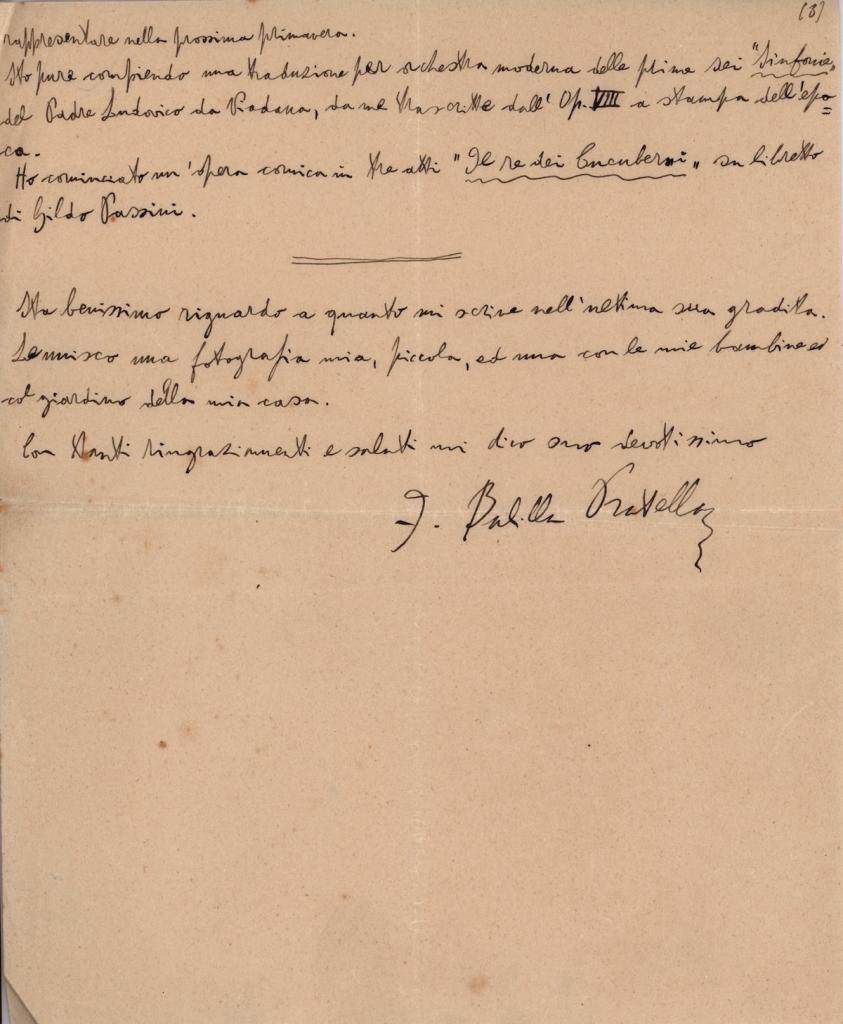 (3)
rappresentare nella prossima primavera.
Sto pure compiendo una traduzione per orchestra moderna delle prime sei "Sinfonie„
del Padre Ludovico da Viadana, da me trascritte dall'Op. VIII a stampa dell'epo=
ca.
Ho cominciato un'opera comica in tre atti "Il re dei Cucuberni„ su libretto
di Gildo Passini.
Sta benissimo riguardo a quanto mi scrive nell'ultima sua gradita.
Le unisco una fotografia mia, piccola, ed una con le mie bambine ed
col giardino della mia casa.
Con tanti ringraziamenti e saluti mi dico suo devotissimo
F. Balilla Pratella